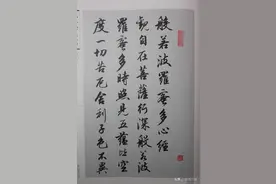 般若波羅蜜多心經
觀自在菩薩行深般若波
羅蜜多時照見五蘊皆空
度一切苦厄舍利子色不異